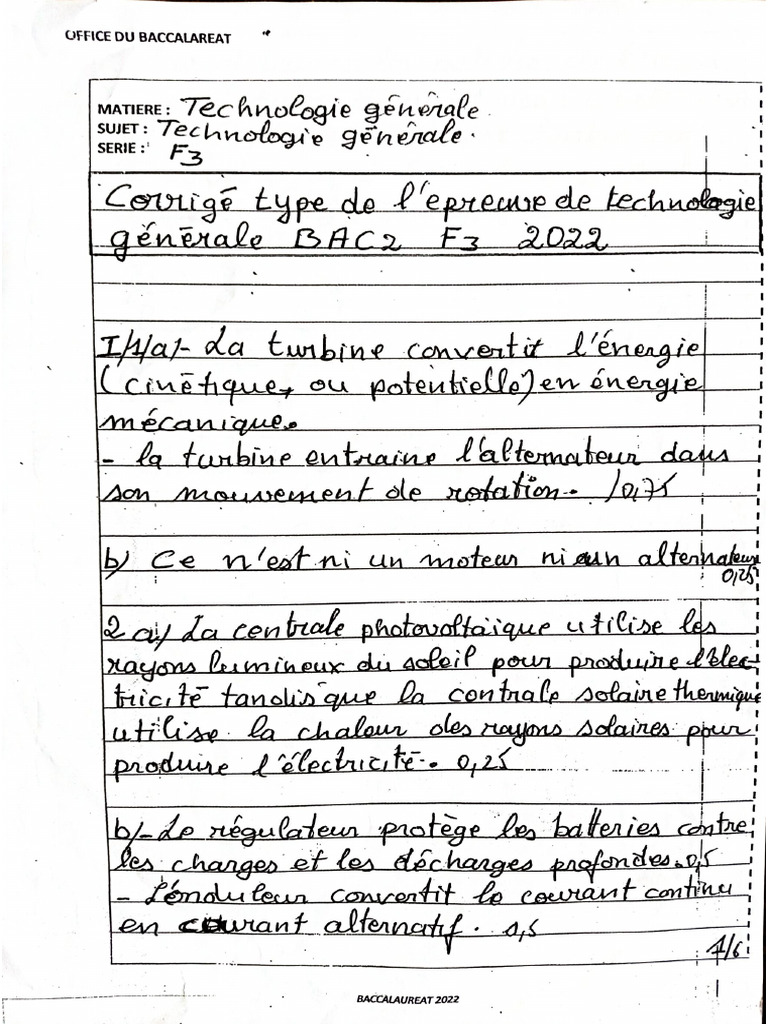 OFFICE DU BACCALAREAT
MATIERE : Technologie générale
SUJET : Technologie générale.
SERIE : F3
Corrigé type de l'épreuve de technologie
générale BAC2 F3 2022
I/1/a/- La turbine convertit l'énergie
(cinétique, ou potentielle) en énergie
mécanique.
- la turbine entraine l'alternateur dans
son mouvement de rotation. /0,75
b) Ce n'est ni un moteur ni un alternateur
0,25
2 a/ La centrale photovoltaïque utilise les
rayons lumineux du soleil pour produire l'élec-
tricité tandis que la centrale solaire thermique
utilise la chaleur des rayons solaires pour
produire l'électricité. 0,25
b/- Le régulateur protège les batteries contre
les charges et les décharges profondes. 0,5
- L'onduleur convertit le courant continu
en courant alternatif. 0,5
1/6
BACCALAUREAT 2022